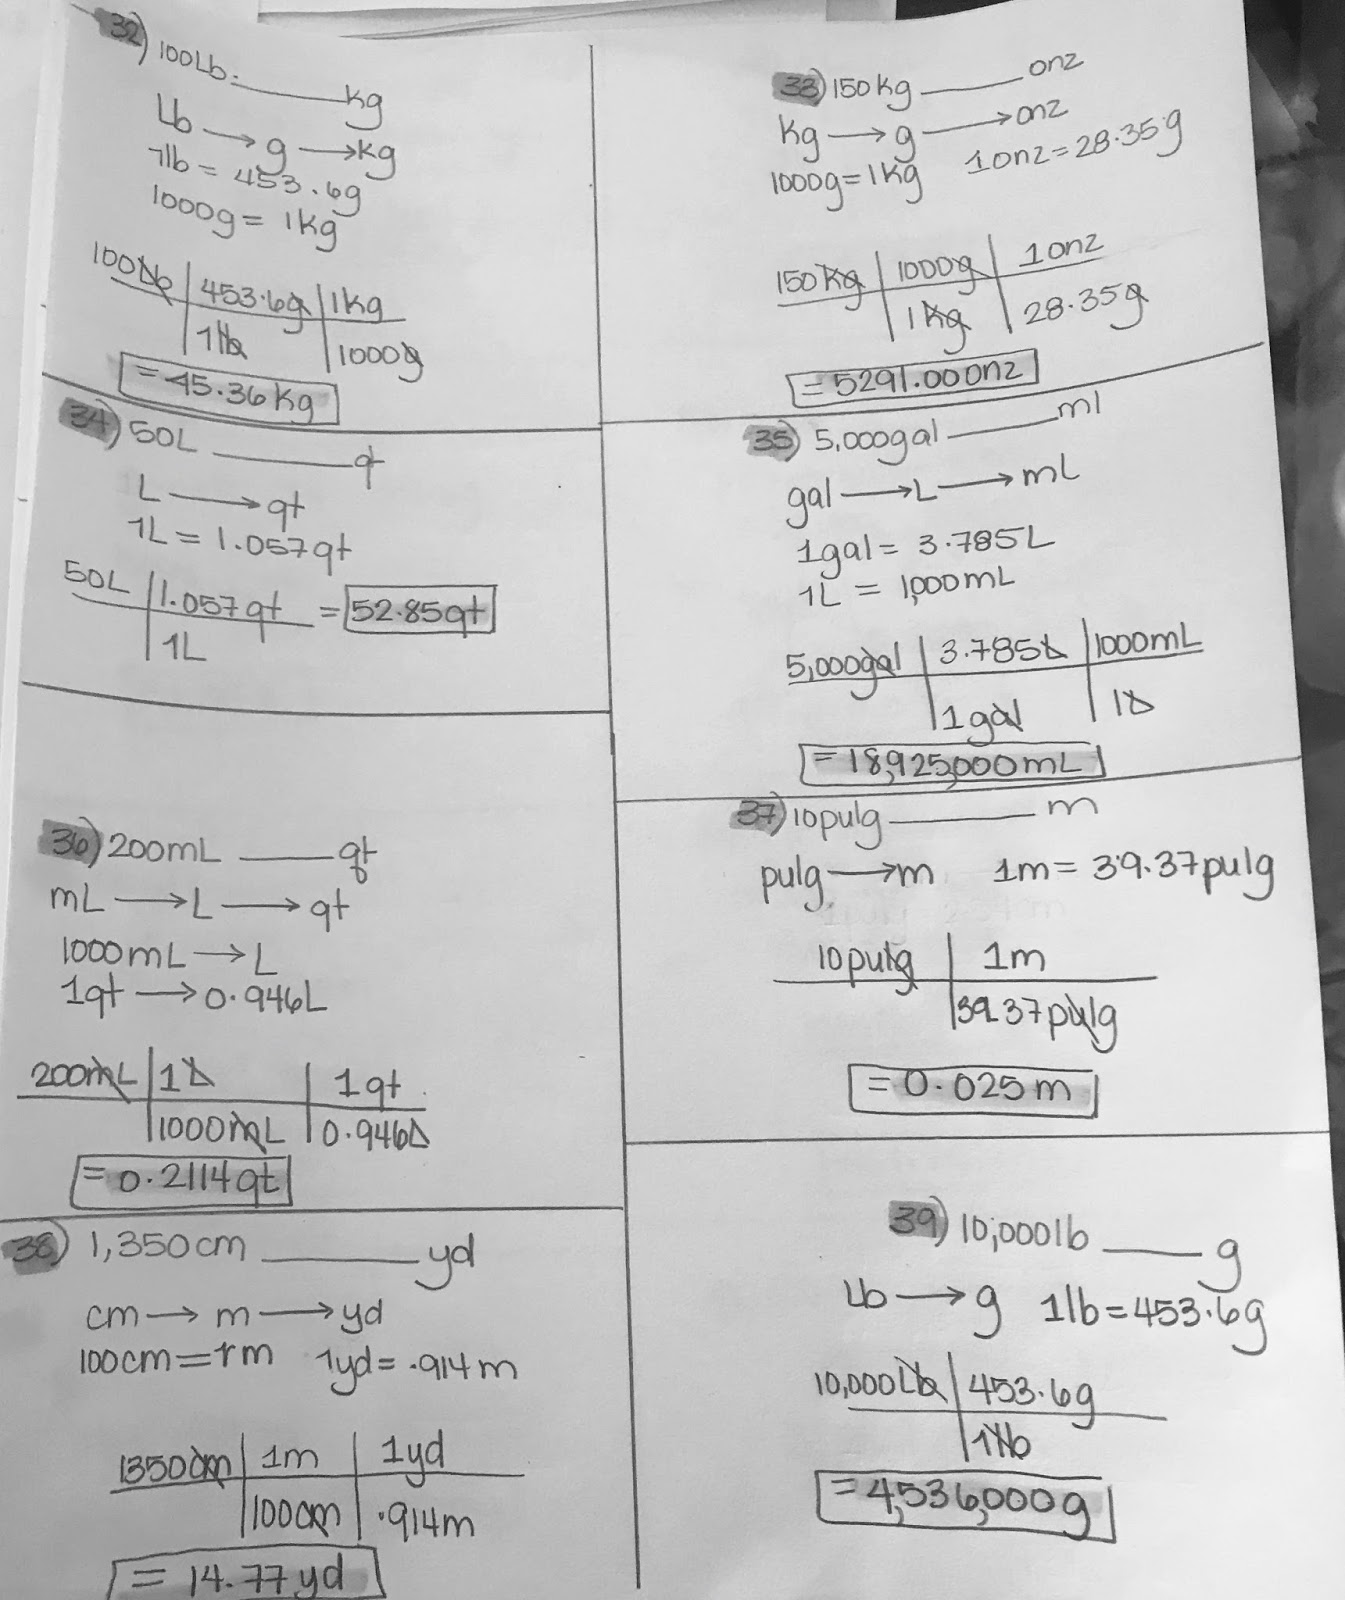 32) 100Lb. ____ kg
Lb → g → kg
1lb = 453.6g
1000g = 1kg
100Lb | 453.6g | 1kg
1lb | 1000g
= 45.36 kg
33) 150 kg ____ onz
kg → g → onz
1000g = 1kg 1onz = 28.35g
150 kg | 1000g | 1onz
1kg | 28.35g
= 5291.00onz
34) 50L ____ qt
L → qt
1L = 1.057qt
50L | 1.057qt = 52.85qt
1L
35) 5,000gal ____ ml
gal → L → mL
1gal = 3.785L
1L = 1,000mL
5,000gal | 3.785L | 1000mL
1gal | 1L
= 18,925,000mL
36) 200mL ____ qt
mL → L → qt
1000mL → L
1qt → 0.946L
200mL | 1L | 1qt
1000mL | 0.946L
= 0.2114qt
37) 10pulg ____ m
pulg → m 1m = 39.37pulg
10pulg | 1m
39.37pulg
= 0.025m
38) 1,350cm ____ yd
cm → m → yd
100cm = 1m 1yd = .914m
1350cm | 1m | 1yd
100cm | .914m
= 14.77yd
39) 10,000lb ____ g
Lb → g 1lb = 453.6g
10,000Lb | 453.6g
1lb
= 4,536,000g